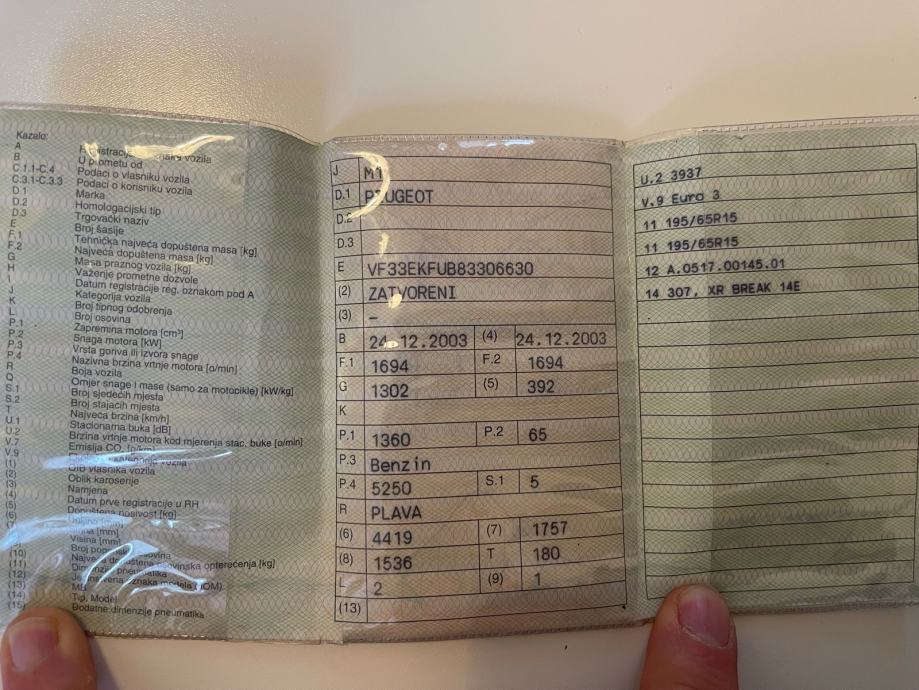 Kazalo:
A Registracijska oznaka vozila
B U prometu od
C.1.1-C.4 Podaci o vlasniku vozila
C.3.1-C.3.3 Podaci o korisniku vozila
D.1 Marka
D.2 Homologacijski tip
D.3 Trgovački naziv
E Broj šasije
F.1 Tehnička najveća dopuštena masa [kg]
F.2 Najveća dopuštena masa [kg]
G Masa praznog vozila [kg]
H Važenje prometne dozvole
I Datum registracije reg. oznakom pod A
J Kategorija vozila
K Broj tipnog odobrenja
L Broj osovina
P.1 Zapremina motora [cm³]
P.2 Snaga motora [kW]
P.3 Vrsta goriva ili izvora snage
P.4 Nazivna brzina vrtnje motora [o/min]
R Boja vozila
Q Omjer snage i mase (samo za motocikle) [kW/kg]
S.1 Broj sjedećih mjesta
S.2 Broj stajaćih mjesta
T Najveća brzina [km/h]
U.1 Stacionarna buka [dB]
U.2 Brzina vrtnje motora kod mjerenja stac. buke [o/min]
V.7 Emisija CO₂ [g/km]
V.9
(1) OIB vlasnika vozila
(2) Oblik karoserije
(3) Namjena
(4) Datum prve registracije u RH
(5) Dopuštena nosivost [kg]
(6)
(7) [mm]
Visina [mm]
Broj osovina
(10)
(11) Najveća osovinska opterećenja [kg]
(12) pneumatika
(13) oznaka modela
MB
(14) Tip, Model
(15) Dodatne dimenzije pneumatika
J M1
D.1 PEUGEOT
D.2
D.3
E VF33EKFUB83306630
(2) ZATVORENI
(3) –
B 24.12.2003 (4) 24.12.2003
F.1 1694 F.2 1694
G 1302 (5) 392
K
P.1 1360 P.2 65
P.3 Benzin
P.4 5250 S.1 5
R PLAVA
(6) 4419 (7) 1757
(8) 1536 T 180
L 2 (9) 1
(13)
U.2 3937
V.9 Euro 3
11 195/65R15
11 195/65R15
12 A.0517.00145.01
14 307, XR BREAK 14E